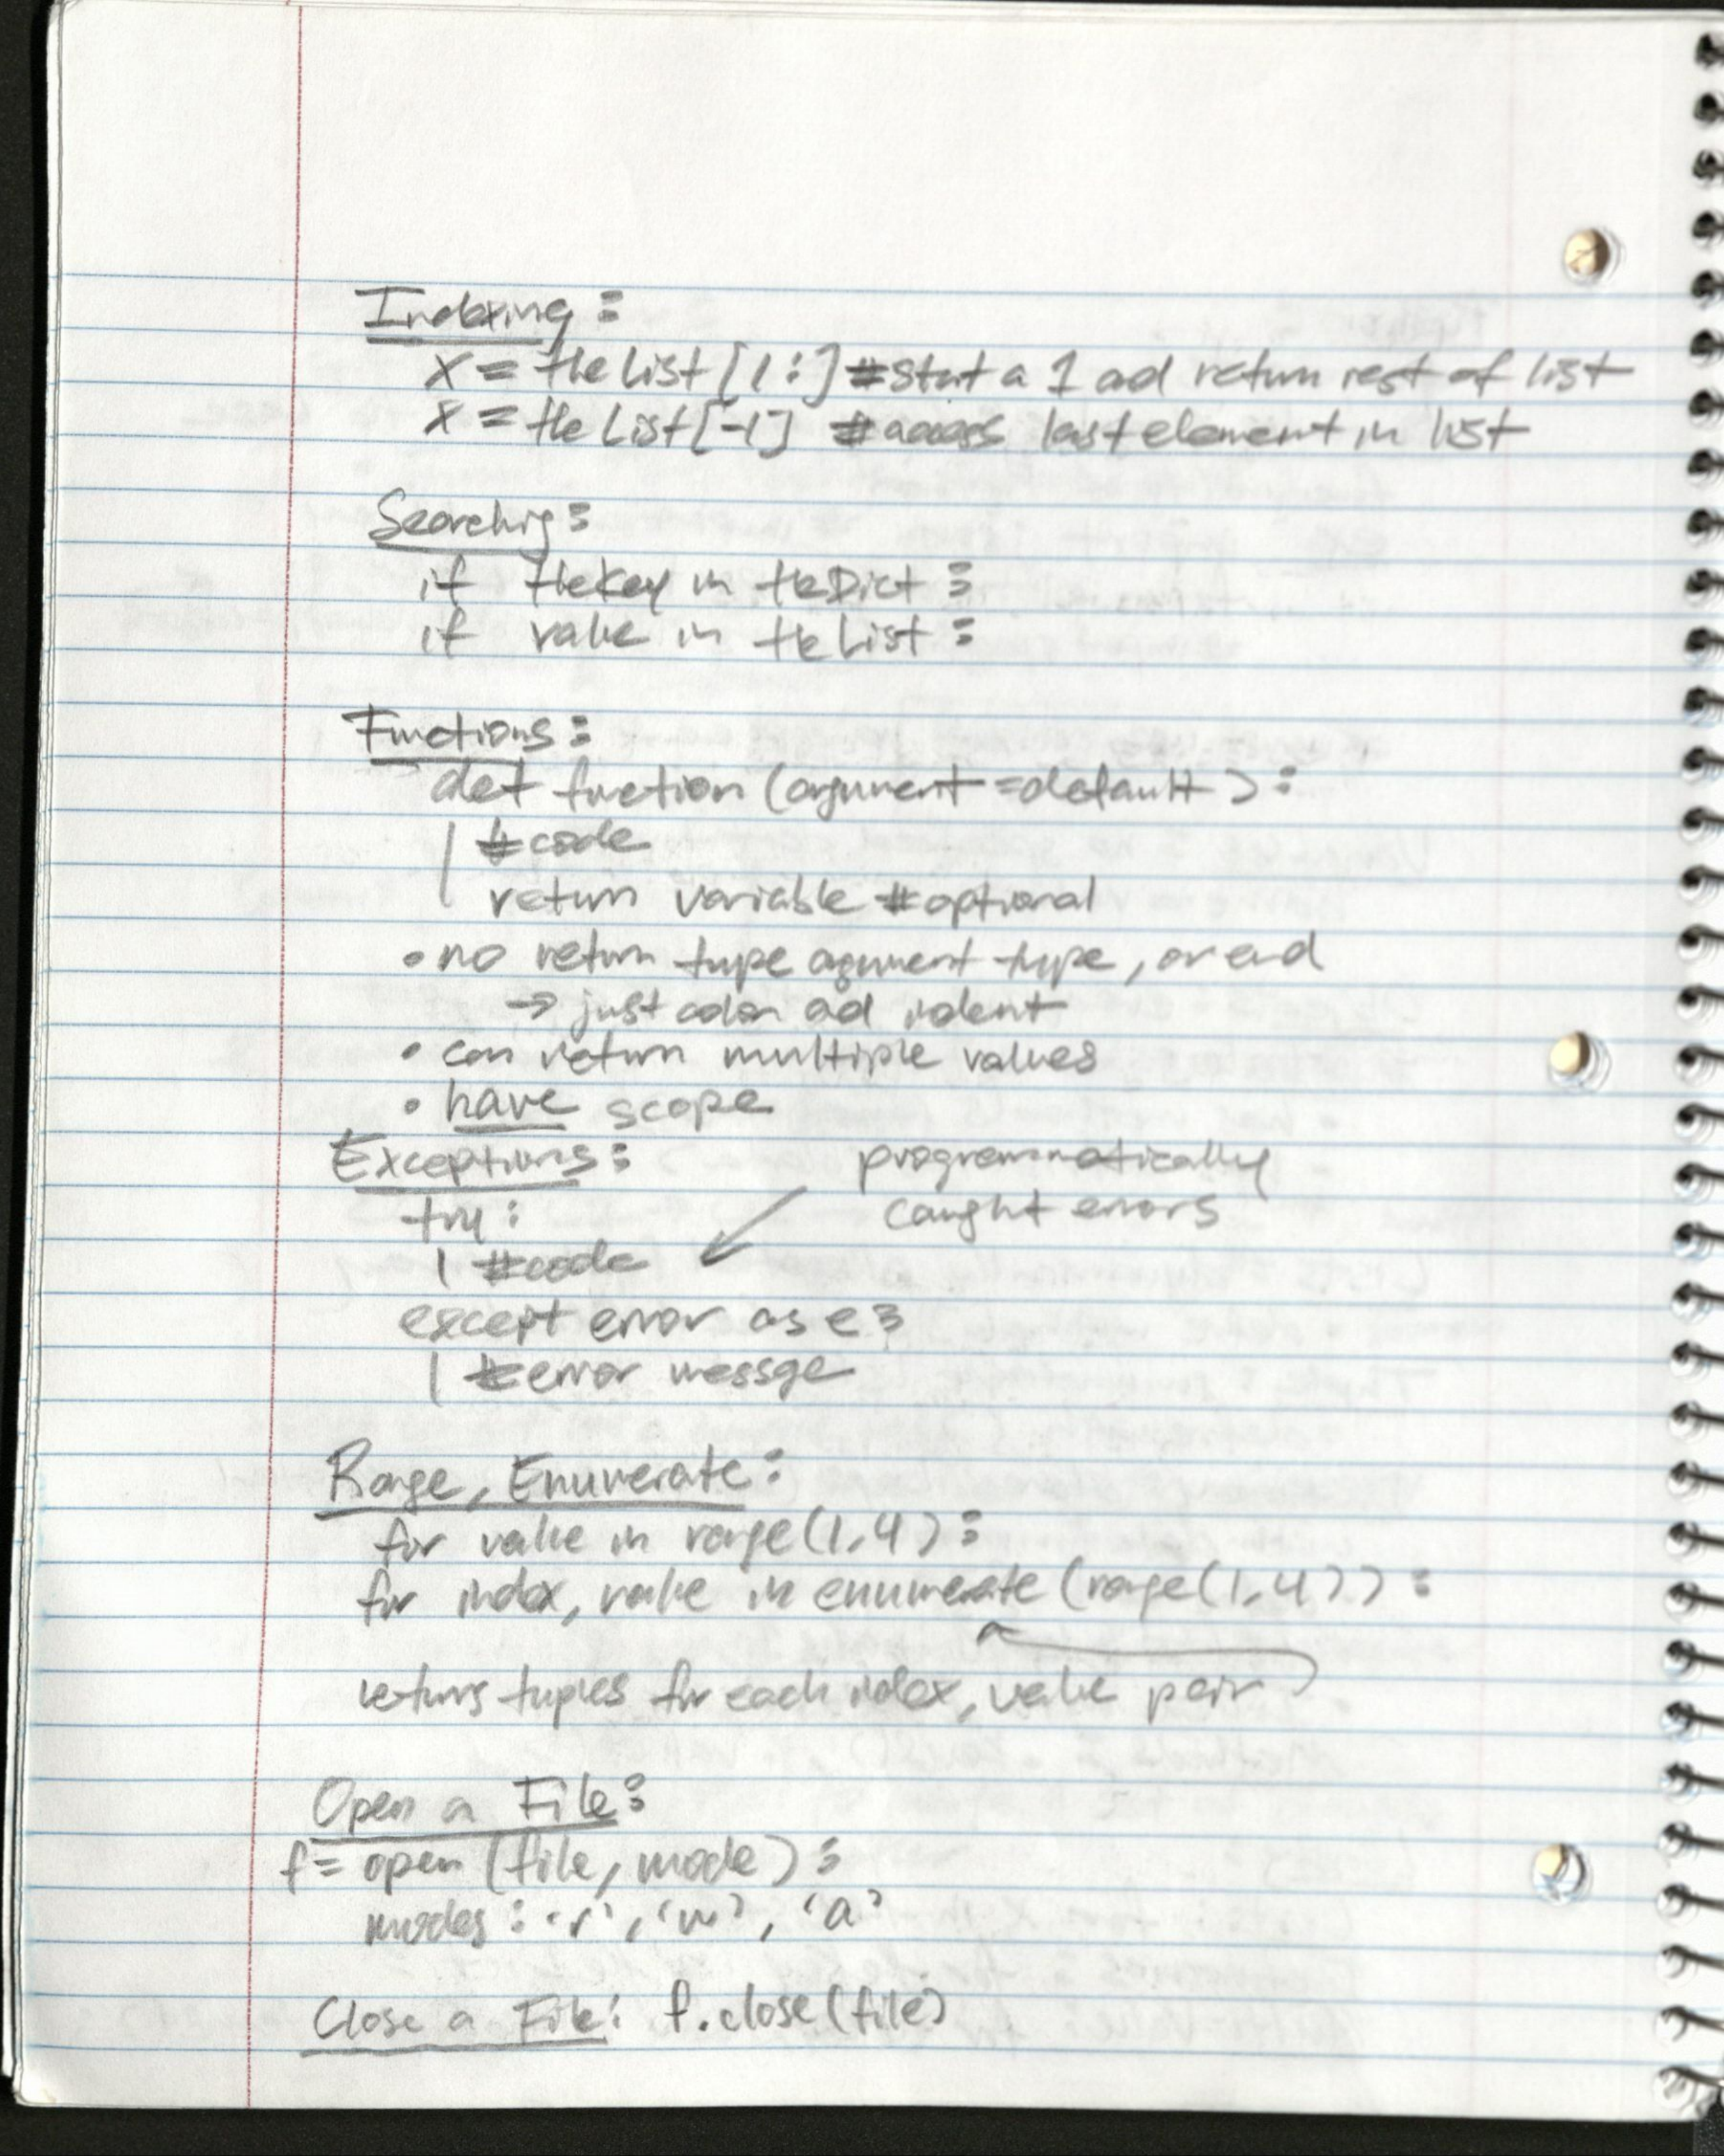 Indexing:
x = theList[1:] #start a 1 ad return rest of list
x = theList[-1] #access last element in list
Searching:
if theKey in theDict:
if value in theList:
Functions:
def function (argument=default):
#code
return variable #optional
• no return type argument type, or end
→ just colon ad indent
• can return multiple values
• have scope
Exceptions:
programmatically
caught errors
try:
#code
except error as e:
#error messge
Range, Enumerate:
for value in range(1,4):
for index, value in enumerate (range(1,4)):
returns tuples for each index, value pair
Open a File:
f= open (file, mode):
modes: 'r', 'w', 'a'
Close a File: f.close(file)